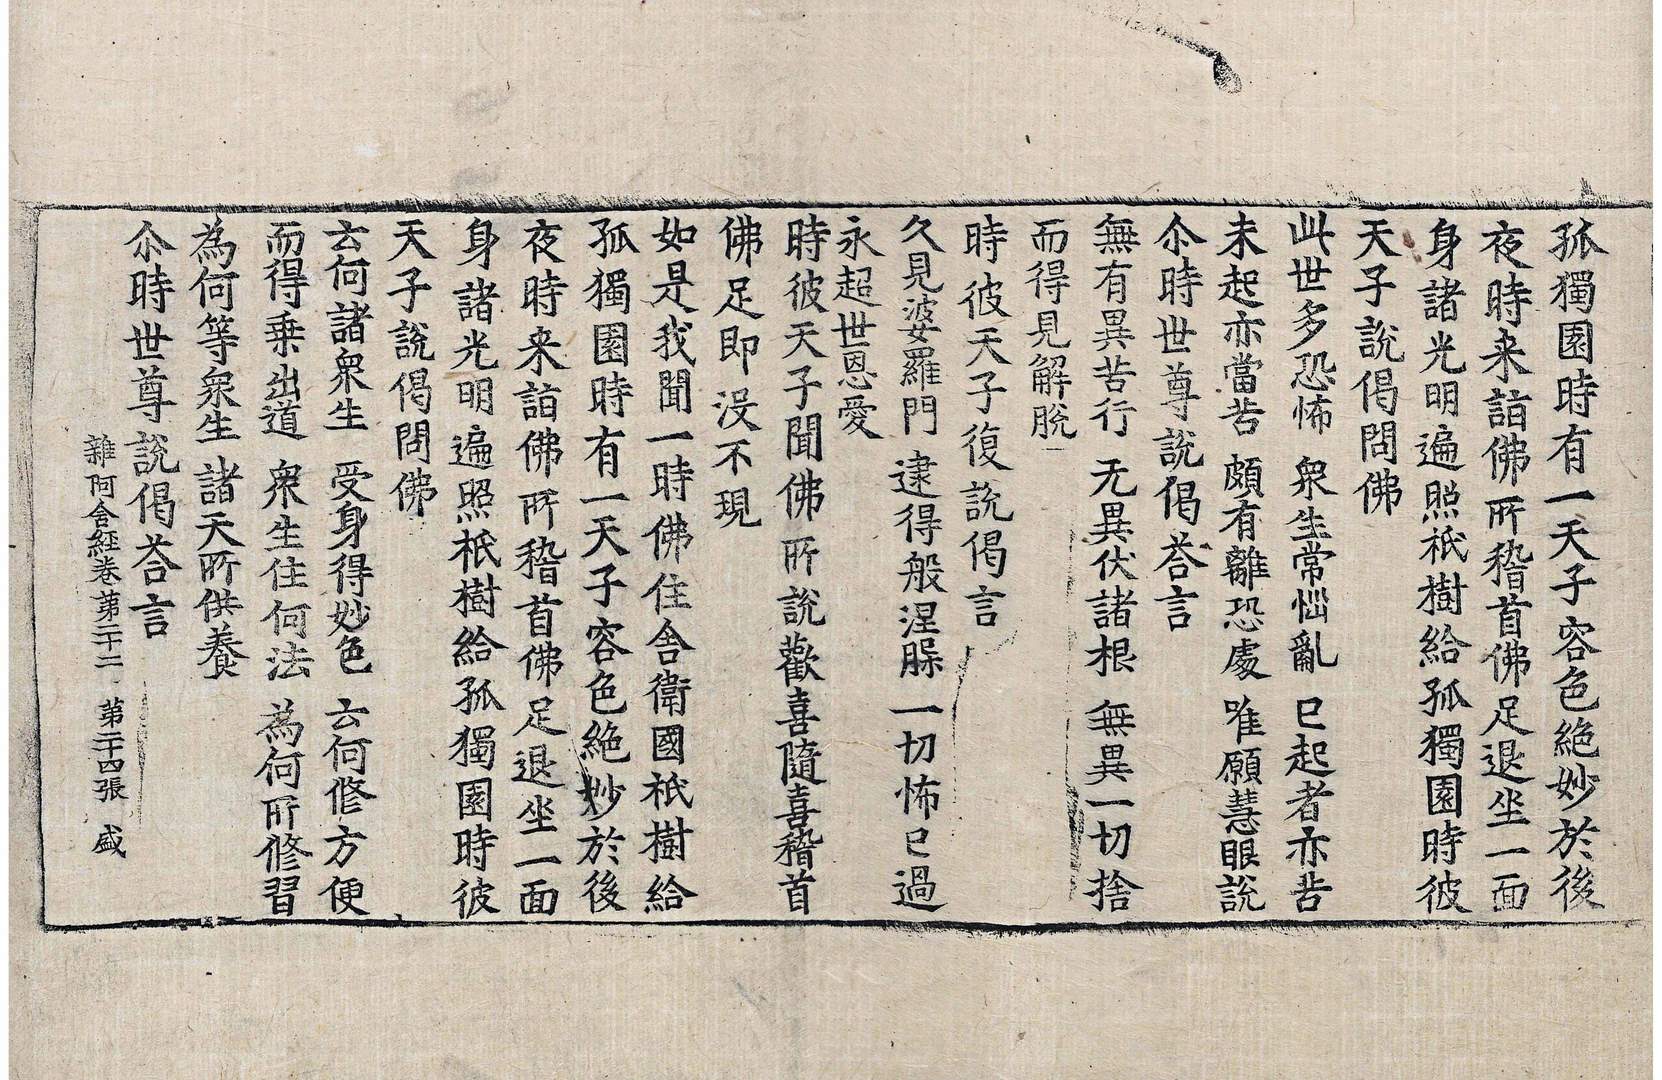 孤獨園時有一天子容色絶妙於後
夜時来詣佛所稽首佛足退坐一面
身諸光明遍照祇樹給孤獨園時彼
天子說偈問佛
此世多恐怖　衆生常惱亂　已起者亦苦
未起亦當苦　頗有離恐處　唯願慧眼說
尒時世尊說偈荅言
無有異苦行　无異伏諸根　無異一切捨
而得見解脫
時彼天子復說偈言
久見婆羅門　逮得般涅槃　一切怖已過
永超世恩愛
時彼天子聞佛所說歡喜隨喜稽首
佛足即没不現
如是我聞一時佛住舍衛國祇樹給
孤獨園時有一天子容色絶妙於後
夜時来詣佛所稽首佛足退坐一面
身諸光明遍照祇樹給孤獨園時彼
天子說偈問佛
云何諸衆生　受身得妙色　云何修方便
而得乗出道　衆生住何法　為何所修習
為何等衆生　諸天所供養
尒時世尊說偈荅言
雜阿含經卷第二十二　第二十四張　盛